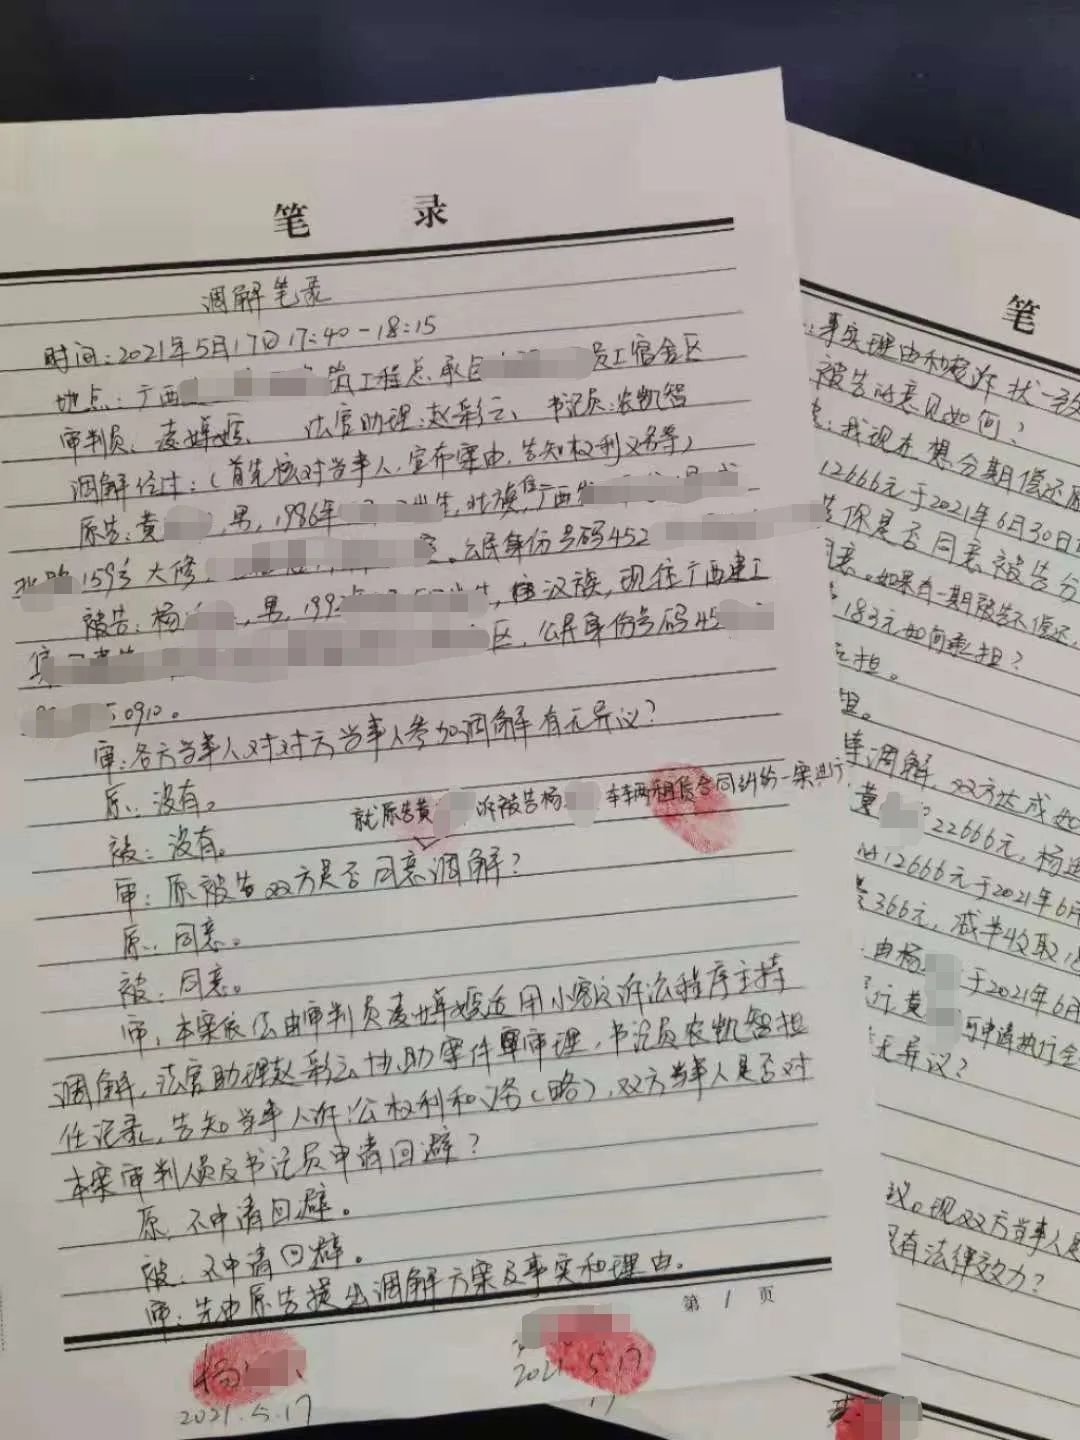 笔 录
调解笔录
时间:2021年5月17日17:40-18:15
地点:广西 筑工程总承包 员工宿舍区
审判员: 凌 法官助理:赵彩云、 书记员:农凯智
调解经过:(首先核对当事人,宣布案由,告知权利义务等)
原告:黄 ,男,1986年 出生,壮族,住广西
159号大修, 。公民身份号码452
被告:杨 ,男,199 出生,汉族,现住广西建工
区,公民身份号码45
0910。
审:各方当事人对对方当事人参加调解有无异议?
原:没有。
就原告黄 诉被告杨 车辆租赁合同纠纷一案进行
被:没有。
审:原被告双方是否同意调解?
原:同意。
被:同意。
审:本案依法由审判员凌 适用小额诉讼程序主持
调解,法官助理赵彩云协助案件审理,书记员农凯智担
任记录,告知当事人诉讼权利和义务(略),双方当事人是否对
本案审判人员及书记员申请回避?
原:不申请回避。
被:不申请回避。
审:先由原告提出调解方案及事实和理由。
第 1 页
杨
2021.5.17
2021.5.17
17
笔
:事实理由和起诉状一致
被告的意见如何?
:我现在想分期偿还原
12666元于2021年6月30日
你是否同意被告分
同意。如果有一期被告不偿还,
183元如何承担?
担。
担。
调解,双方达成如
黄 22666元,杨
12666元于2021年6月
366元,减半收取18
由杨 于2021年6月
行黄 可申请执行全
无异议?
议。现双方当事人是
具有法律效力?
黄